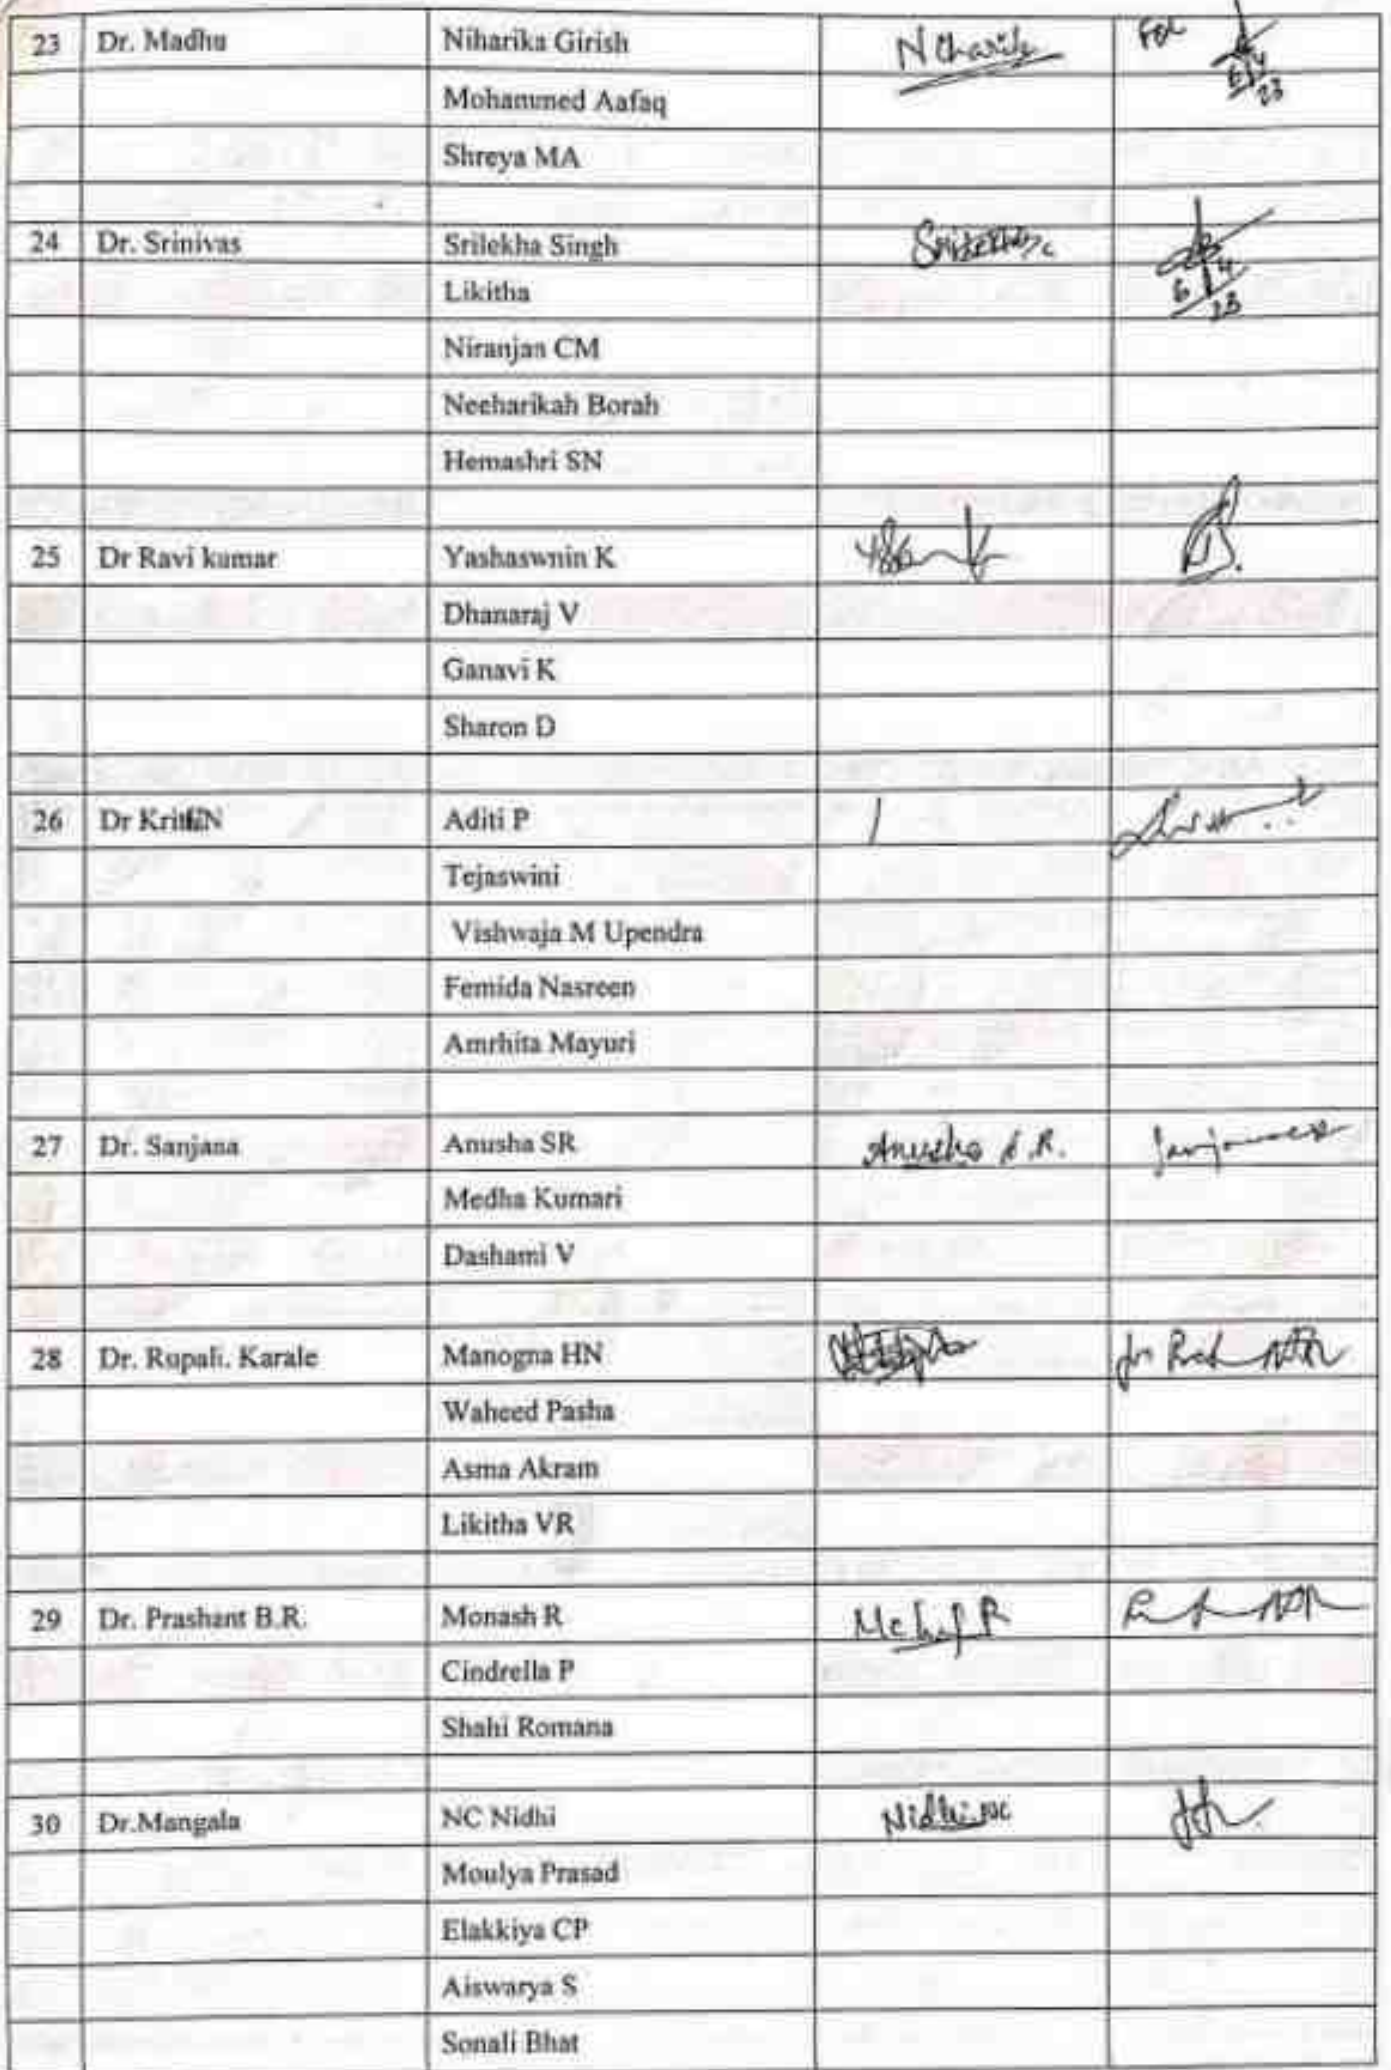 23 Dr. Madhu Niharika Girish Niharik For
6/4
23
Mohammed Aafaq
Shreya MA
24 Dr. Srinivas Srilekha Singh
6/4
23
Likitha
Niranjan CM
Neeharikah Borah
Hemashri SN
25 Dr Ravi kumar Yashaswnin K
Dhanaraj V
Ganavi K
Sharon D
26 Aditi P
Tejaswini
Vishwaja M Upendra
Femida Nasreen
Amrhita Mayuri
27 Dr. Sanjana Anusha SR Anusha S.R.
Medha Kumari
Dashami V
28 Dr. Rupali. Karale Manogna HN for
Waheed Pasha
Asma Akram
Likitha VR
29 Dr. Prashant B.R. Monash R
Cindrella P
Shahi Romana
30 Dr.Mangala NC Nidhi Nidhi.NC
Moulya Prasad
Elakkiya CP
Aiswarya S
Sonali Bhat